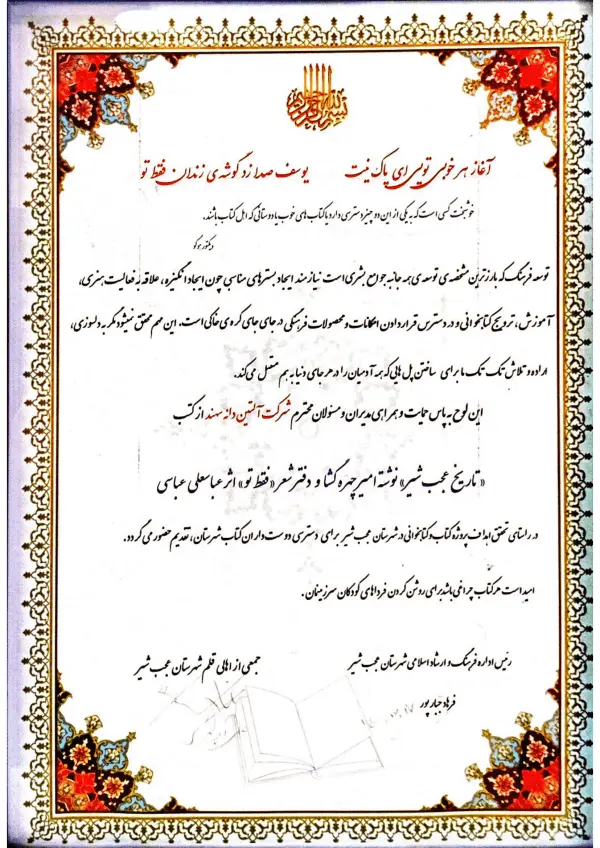 بسم الله الرحمن الرحیم
آغاز هر خوبی تویی ای پاک نیت یوسف صدا زد گوشه‌ی زندان فقط تو
خوشبخت کسی است که به یکی از این دو چیز دسترسی دارد یا کتاب های خوب یا دوستانی که اهل کتاب باشند.
ویکتور هوگو
توسعه فرهنگ که بارزترین مشخصه ی توسعه ی همه جانبه جوامع بشری است نیازمند ایجاد بسترهای مناسبی چون ایجاد انگیزه، علاقه به فعالیت هنری،
آموزش، ترویج کتابخوانی و در دسترس قرار دادن امکانات و محصولات فرهنگی در جای جای کره ی خاکی است. این مهم محقق نمیشود مگر به دلسوزی،
اراده و تلاش تک تک ما برای ساختن پل هایی که همه آدمیان را در هر جای دنیا به هم متصل می‌کند.
این لوح به پاس حمایت و همراهی مدیران و مسئولان محترم شرکت آلتین دانه سهند از کتب
«تاریخ عجب شیر» نوشته امیر چهره گشا و دفتر شعر «فقط تو» اثر عباسعلی عباسی
در راستای تحقق اهداف پروژه کتاب و کتابخوانی در شهرستان عجب شیر برای دسترسی دوست داران کتاب شهرستان، تقدیم حضور می گردد.
امید است هر کتاب چراغی باشد برای روشن کردن فرداهای کودکان سرزمینمان.
رئیس اداره فرهنگ و ارشاد اسلامی شهرستان عجب شیر جمعی از اهالی قلم شهرستان عجب شیر
فرهاد جبارپور